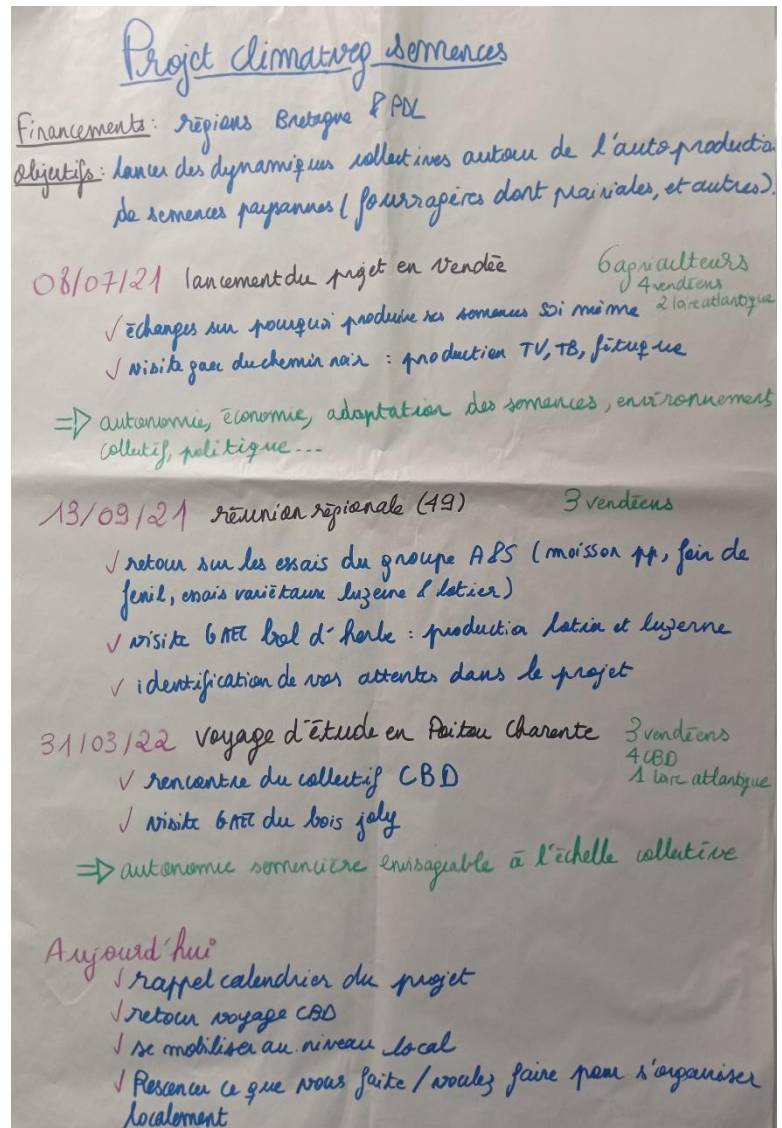 Projet climatveg semences
Financements : régions Bretagne & PDL
Objectifs : lancer des dynamiques collectives autour de l'autoproductio
de semences paysannes (fourragères dont prairiales, et autres).
08/07/21 lancement du projet en Vendée 6 agriculteurs
4 vendéens
2 loire atlantique
✓ échanges sur pourquoi produire ses semences soi même
✓ visite gaec du chemin noir : production TV, TB, fétuque
⇒ autonomie, économie, adaptation des semences, environnement
collectif, politique...
13/09/21 réunion régionale (49) 3 vendéens
✓ retour sur les essais du groupe A&S (moisson pp, foin de
fenil, essais variétaux luzerne & lotier)
✓ visite GAEC bol d'herbe : production lotier et luzerne
✓ identification de vos attentes dans le projet
31/03/22 voyage d'étude en Poitou Charente 3 vendéens
4 CBD
1 loire atlantique
✓ rencontre du collectif CBD
✓ visite GAEC du bois joly
⇒ autonomie semencière envisageable à l'échelle collective
Aujourd'hui
✓ rappel calendrier du projet
✓ retour voyage CBD
✓ se mobiliser au niveau local
✓ Rescencer ce que vous faite / voulez faire pour s'organiser
localement